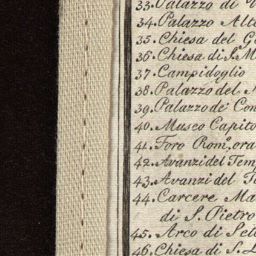 33. Palazzo di
34. Palazzo Alt
35. Chiesa del G
36. Chiesa di S. M
37. Campidoglio
38. Palazzo del
39. Palazzo de Con
40. Museo Capito
41. Foro Rom.º, ora
42. Avanzi del Tem
43. Avanzi del T
44. Carcere Ma
di S. Pietro
45. Arco di Set
46. Chiesa di S. L